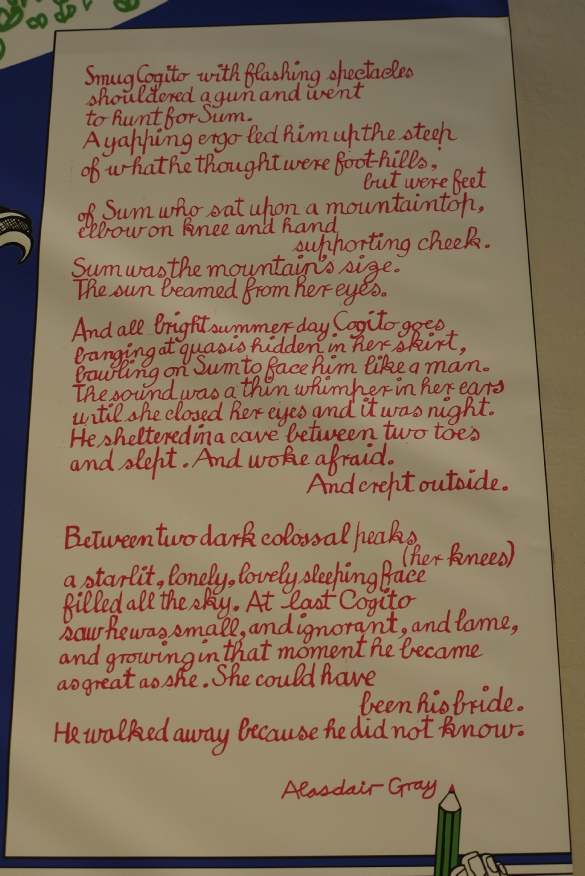 Smug Cogito with flashing spectacles
shouldered a gun and went
to hunt for Sum.
A yapping ergo led him up the steep
of what he thought were foot-hills,
but were feet
of Sum who sat upon a mountaintop,
elbow on knee and hand
supporting cheek.
Sum was the mountain's size.
The sun beamed from her eyes.
And all bright summer day Cogito goes
banging at quasis hidden in her skirt,
bawling on Sum to face him like a man.
The sound was a thin whimper in her ears
until she closed her eyes and it was night.
He sheltered in a cave between two toes
and slept. And woke afraid.
And crept outside.
Between two dark colossal peaks
(her knees)
a starlit, lonely, lovely sleeping face
filled all the sky. At last Cogito
saw he was small, and ignorant, and lame,
and growing in that moment he became
as great as she. She could have
been his bride.
He walked away because he did not know.
Alasdair Gray